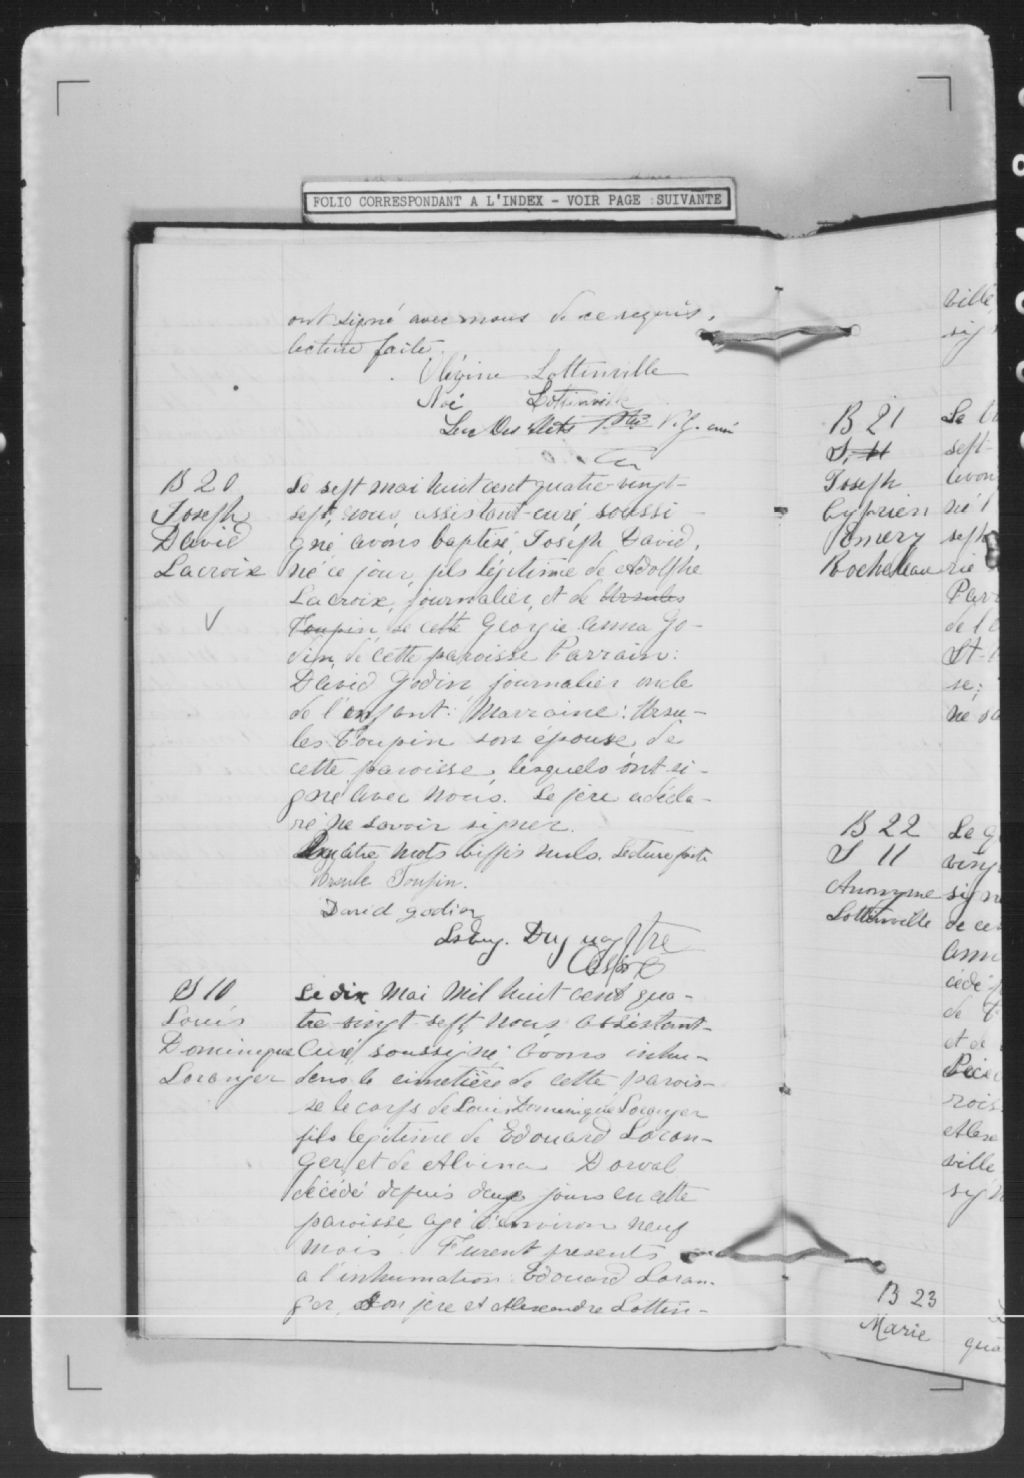 FOLIO CORRESPONDANT A L'INDEX - VOIR PAGE SUIVANTE
ont signé avec nous de ce requis,
lecture faite.
Olégine Lottinville
Noé Lottinville
Luc Des Ptre V.G. curé
B 20
Joseph
David
Lacroix
Le sept mai huit cent quatre-vingt-
sept, nous, assistant-curé soussi-
gné avons baptisé Joseph David,
né ce jour, fils légitime de Adolphe
Lacroix, journalier, et de Ursules
Toupin de cette Georgie Anna Go-
din, de cette paroisse Parrain:
David Godin, journalier oncle
de l'enfant: Marraine: Ursu-
les Toupin son épouse, de
cette paroisse, lesquels ont si-
gné avec nous. Le père a décla-
ré ne savoir signer.
Quatre mots biffés nuls. Lecture faite
Ursule Toupin.
David Godin
Ptre
S 10
Louis
Dominique
Loranger
Le dix Mai Mil huit cent qua-
tre-vingt-sept, nous assistant-
Curé soussigné, avons inhu-
dans le cimetière de cette parois-
se le corps de Louis Dominique Loranger
fils légitime de Edouard Loran-
ger, et de Alvina Dorval
décédé depuis deux jours en cette
paroisse agé d'environ neuf
mois. Furent présents
a l'inhumation: Edouard Loran-
ger, son père et Alexandre Lottin-
ville
sig
B 21
S. 11
Joseph
Cyprien
Rocheleau
sept-
né l
seph
rie
Parr
de l
St-
se;
B 22
S 11
Anonyme
Lottinville
ving
sign
de ce
cédé
de
et de
rois
Alex
ville
sign
B 23
Marie
qua